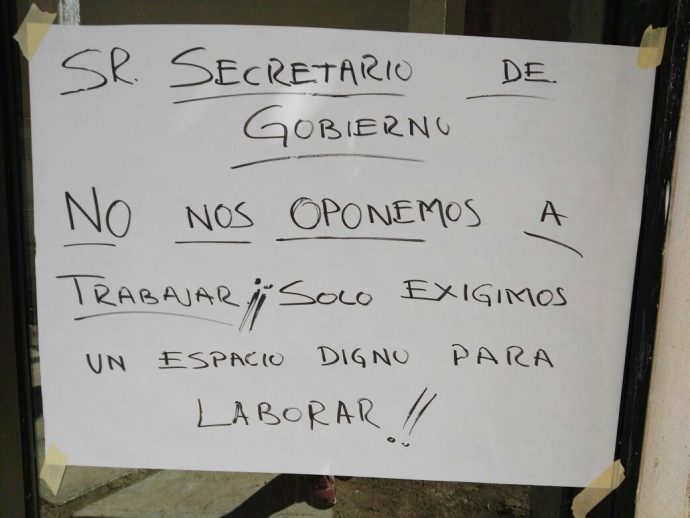 SR. SECRETARIO DE
GOBIERNO
NO NOS OPONEMOS A
TRABAJAR ¡¡ SOLO EXIGIMOS
UN ESPACIO DIGNO PARA
LABORAR !!